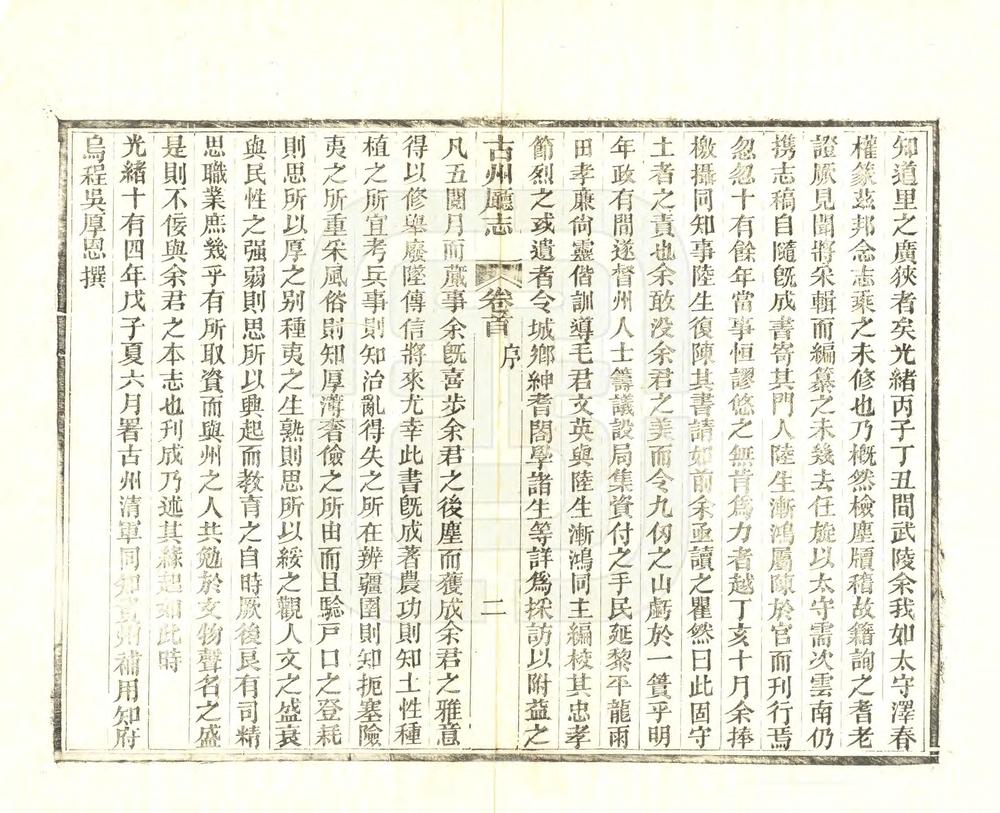 知道里之廣狹者矣光緒丙子丁丑間武陵余我如太守澤春
權篆茲邦念志乘之未修也乃槪然檢塵牘稽故籍詢之耆老
證厥見聞將采輯而編纂之未幾去任旋以太守需次雲南仍
携志稿自隨旣成書寄其門人陸生漸鴻屬陳於官而刊行焉
忽忽十有餘年當事恒謬悠之無肯爲力者越丁亥十月余捧
檄攝同知事陸生復陳其書請如前余亟讀之瞿然曰此固守
土者之責也余敢没余君之美而令九仞之山虧於一簣乎明
年政有間遂督州人士籌議設局集資付之手民延黎平龍雨
田孝廉尙靈偕訓導毛君文英與陸生漸鴻同主編校其忠孝
節烈之或遺者令城鄉紳耆閤學諸生等詳爲採訪以附益之
古州廳志 卷首 序 二
凡五閱月而蕆事余旣喜步余君之後塵而獲成余君之雅意
得以修舉廢墜傳信將來尤幸此書旣成著農功則知土性種
植之所宜考兵事則知治亂得失之所在辨疆圉則知扼塞險
夷之所重采風俗則知厚薄奢儉之所由而且騐戸口之登耗
則思所以厚之别種夷之生熟則思所以綏之觀人文之盛衰
與民性之强弱則思所以興起而教育之自時厥後良有司精
思職業庶幾乎有所取資而與州之人共勉於文物聲名之盛
是則不佞與余君之本志也刊成乃述其緣起如此時
光緒十有四年戊子夏六月署古州清軍同知貴州補用知府
烏程吳厚恩撰